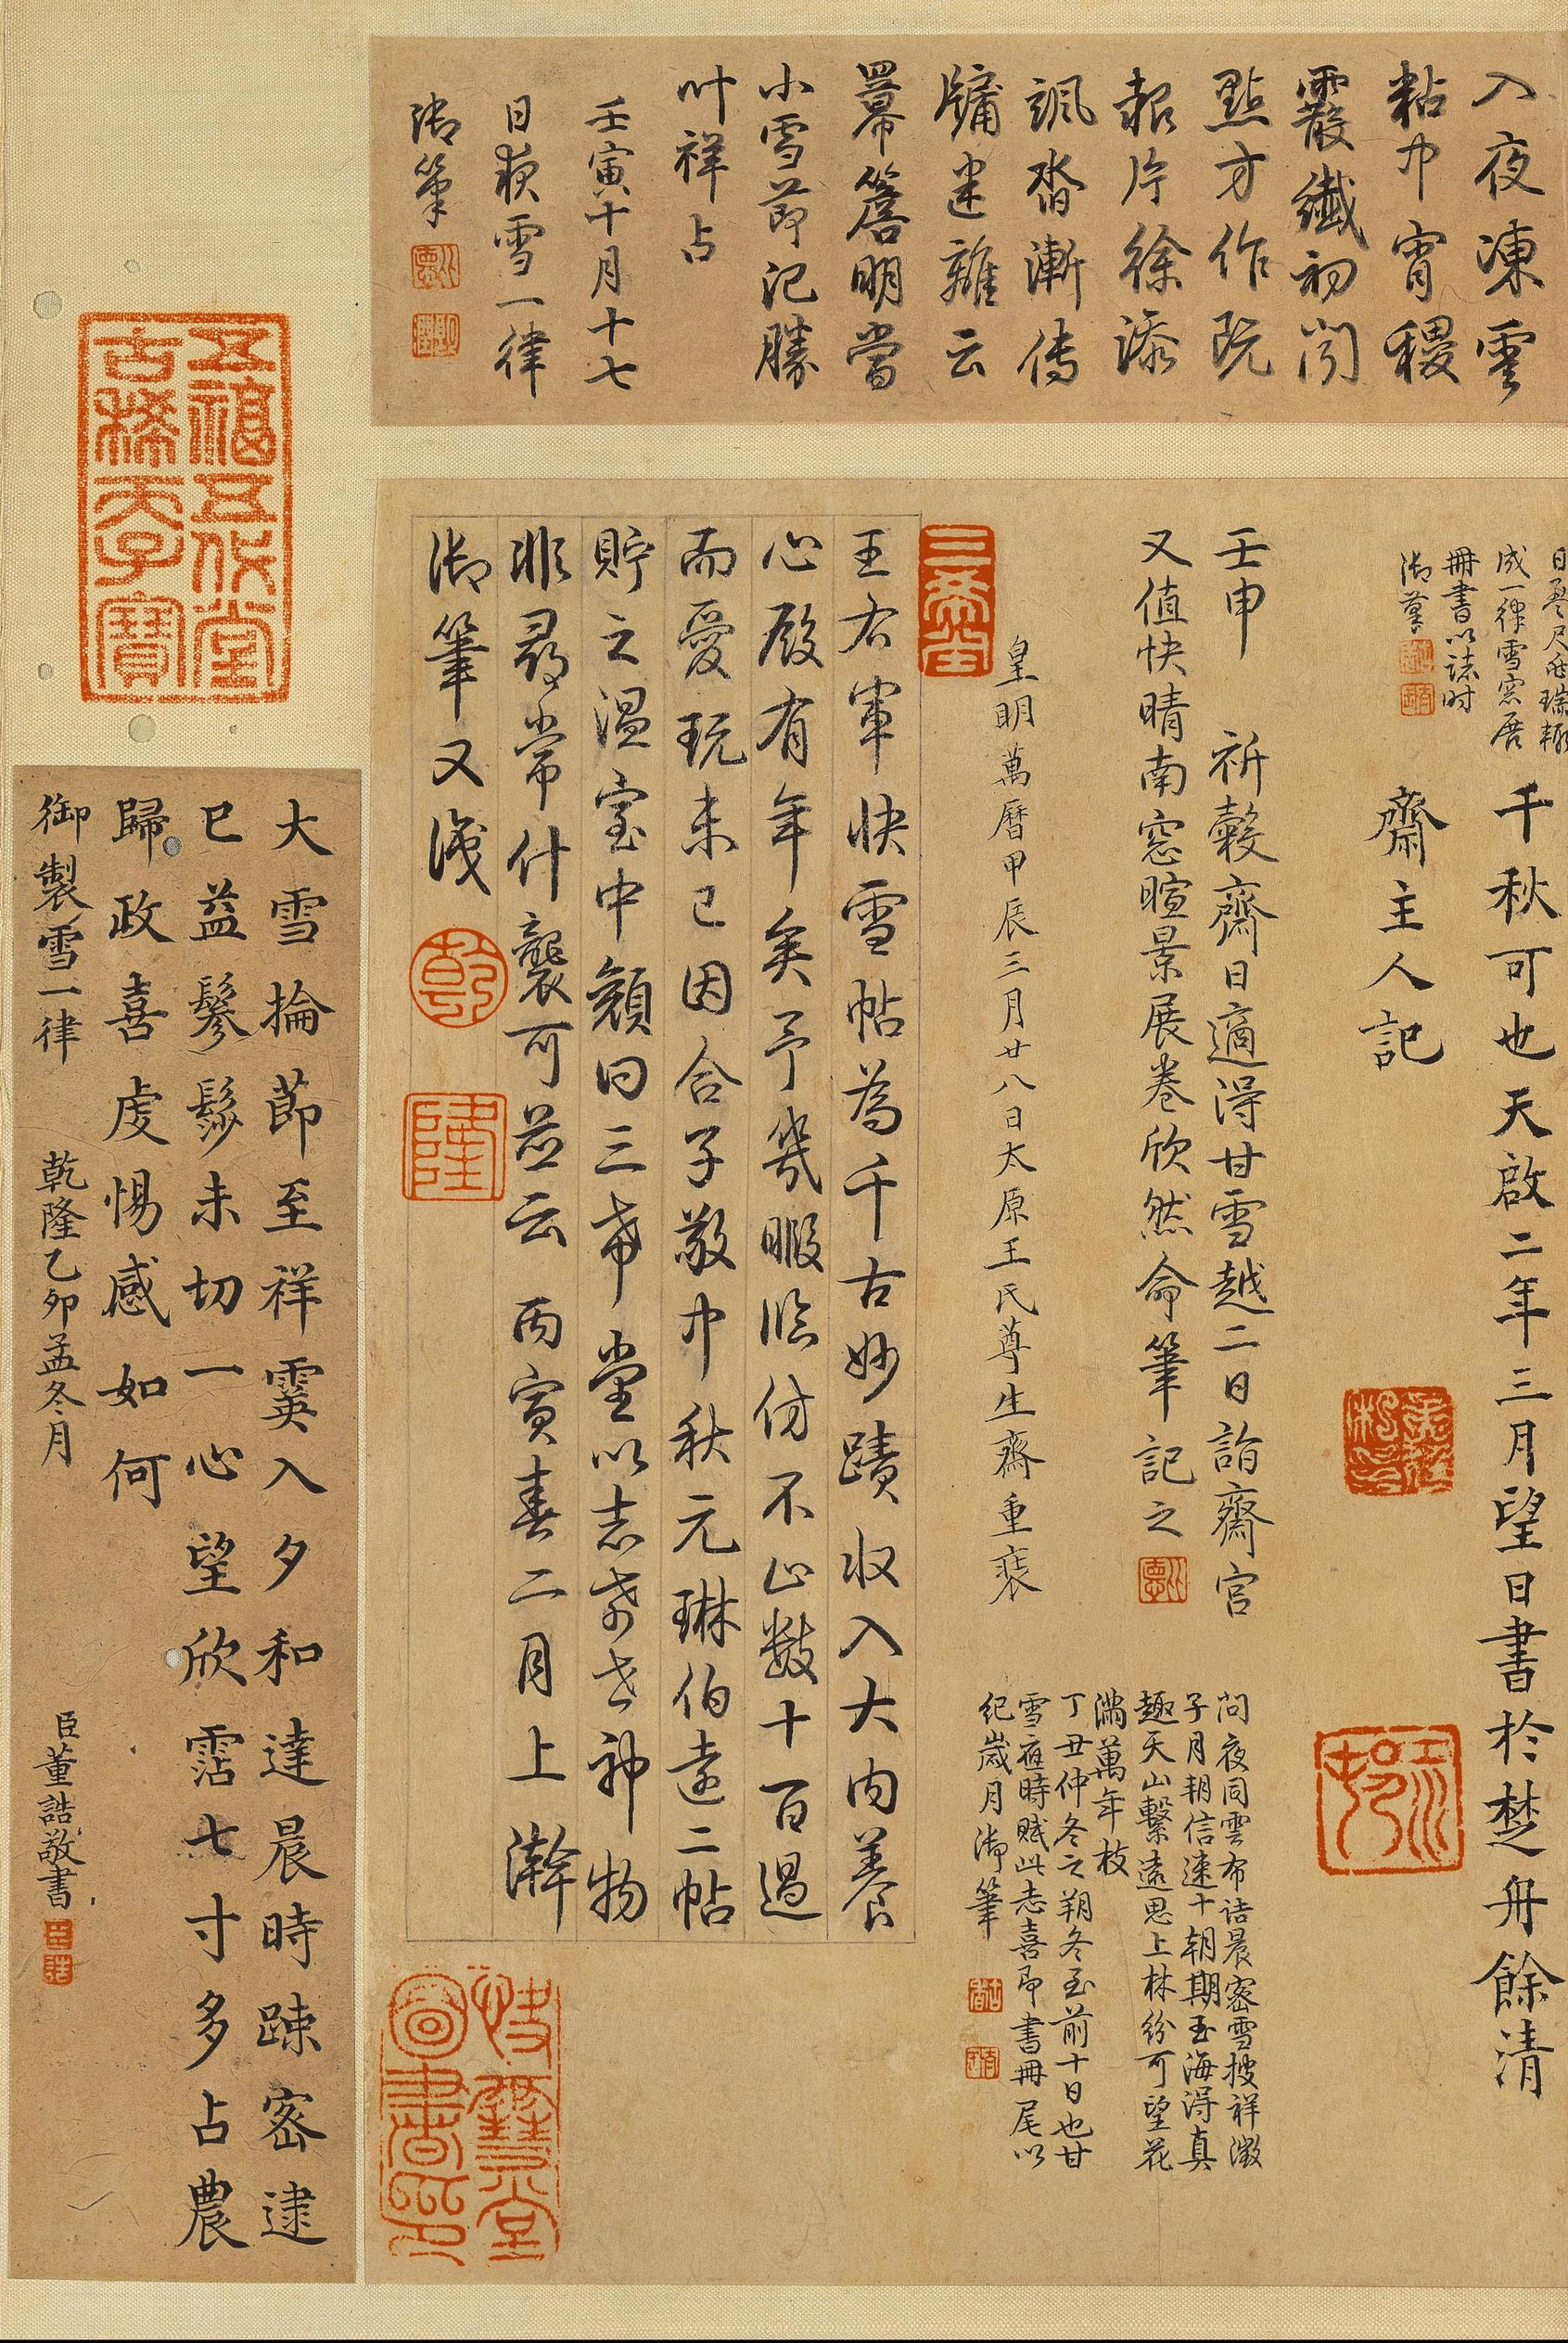 入夜凍雲
粘中宵稷
霰纖初閃
點方作既
報片徐添
諷沓漸傳
牖迷離云
冪簷明當
小雪節記勝
叶祥占
壬寅十月十七
日夜雪一律
御筆
成一律雪窓展
冊書以誌時
御筆
千秋可也天啟二年三月望日書於楚舟餘清
齋主人記
壬申 祈穀齋日適得甘雪越二日詣齋宮
又值快晴南窓暄景展卷欣然命筆記之
皇明萬曆甲辰三月廿八日太原王氏尊生齋重裝
問夜同雲布詰晨密雪披祥徵
子月朔信速十朝期玉海得真
趣天山繫遠思上林紛可望花
滿萬年枝
丁丑仲冬之朔冬至前十日也甘
雪應時賦此志喜即書冊尾以
紀歲月御筆
三希堂
王右軍快雪帖為千古妙蹟收入大內養
心殿有年矣予幾暇臨仿不止數十百過
而愛玩未已因合子敬中秋元琳伯遠二帖
貯之溫室中顏曰三希堂以志希世神物
非尋常什襲可並云 丙寅春二月上澣
御筆又識
乾
隆
快雪堂
圖書印
五福五代堂
古稀天子寶
大雪掄節至祥霙入夕和達晨時踈密逮
巳益鬖鬖未切一心望欣霑七寸多占農
歸政喜虔惕感如何
御製雪一律 乾隆乙卯孟冬月 臣董誥敬書